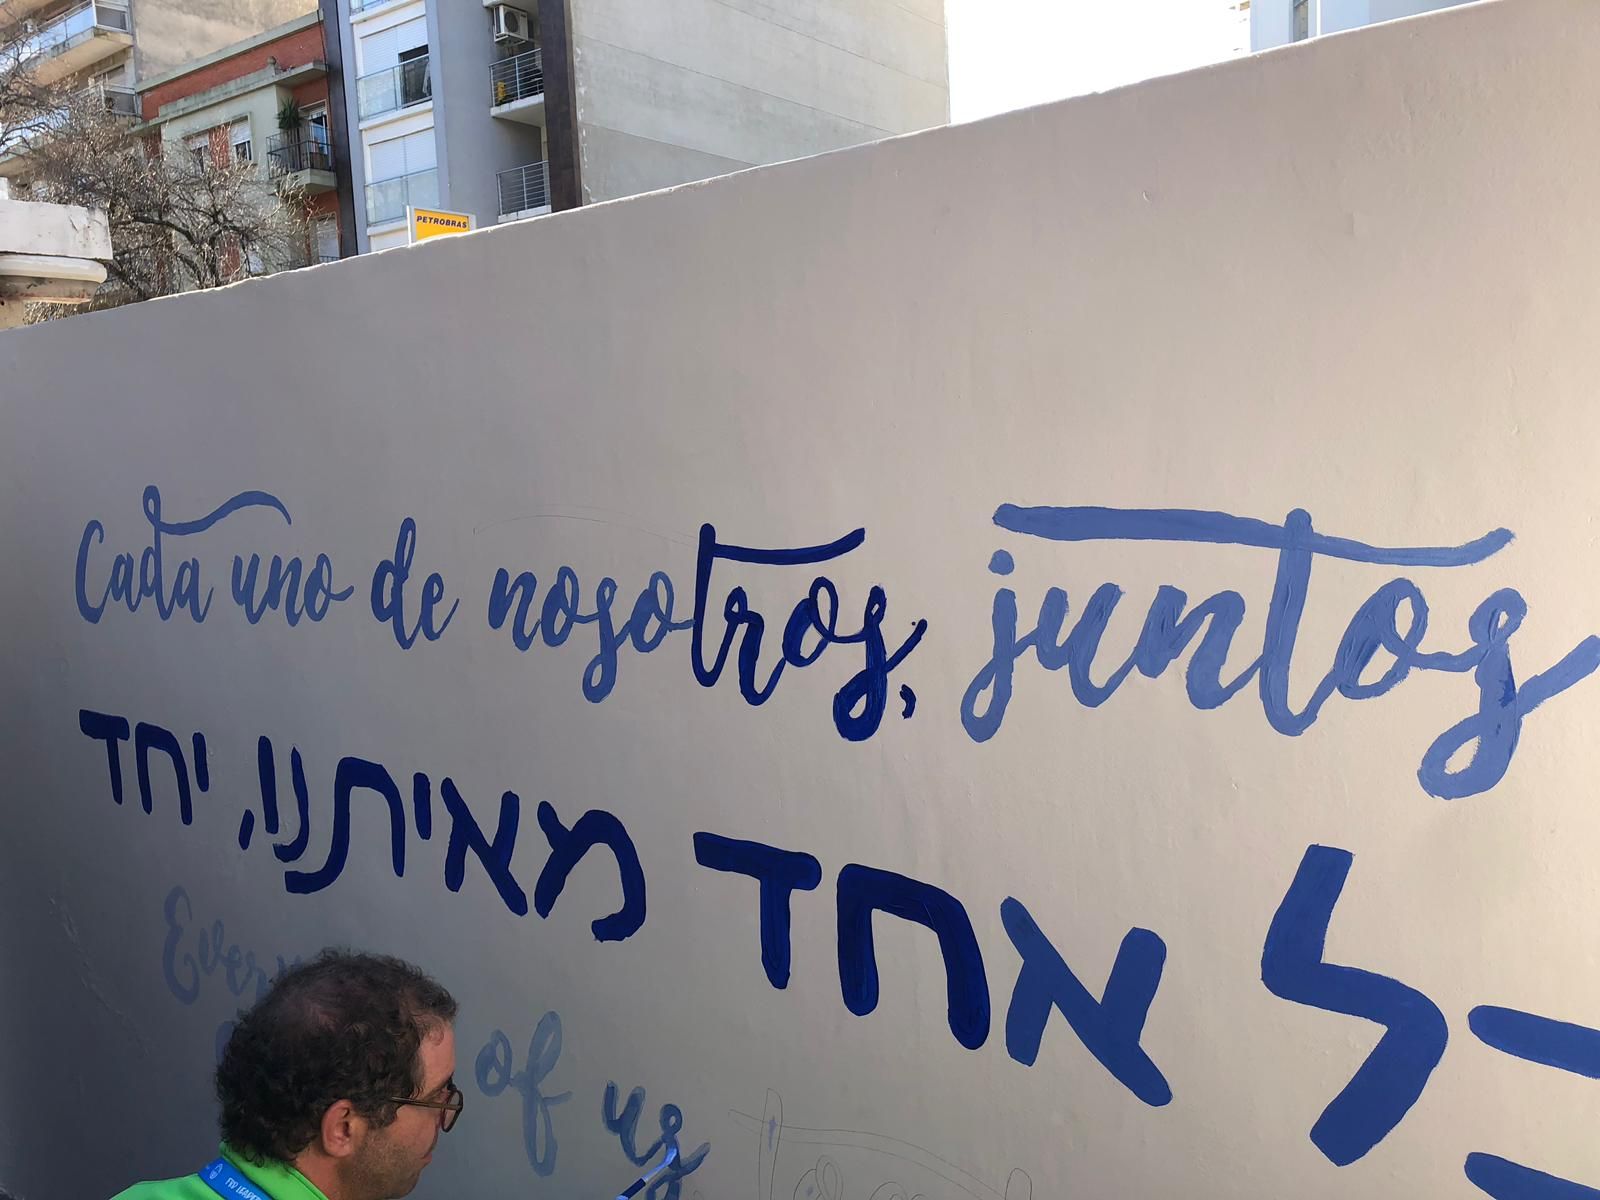 PETROBRAS
Cada uno de nosotros, juntos
כל אחד מאיתנו, יחד
of us